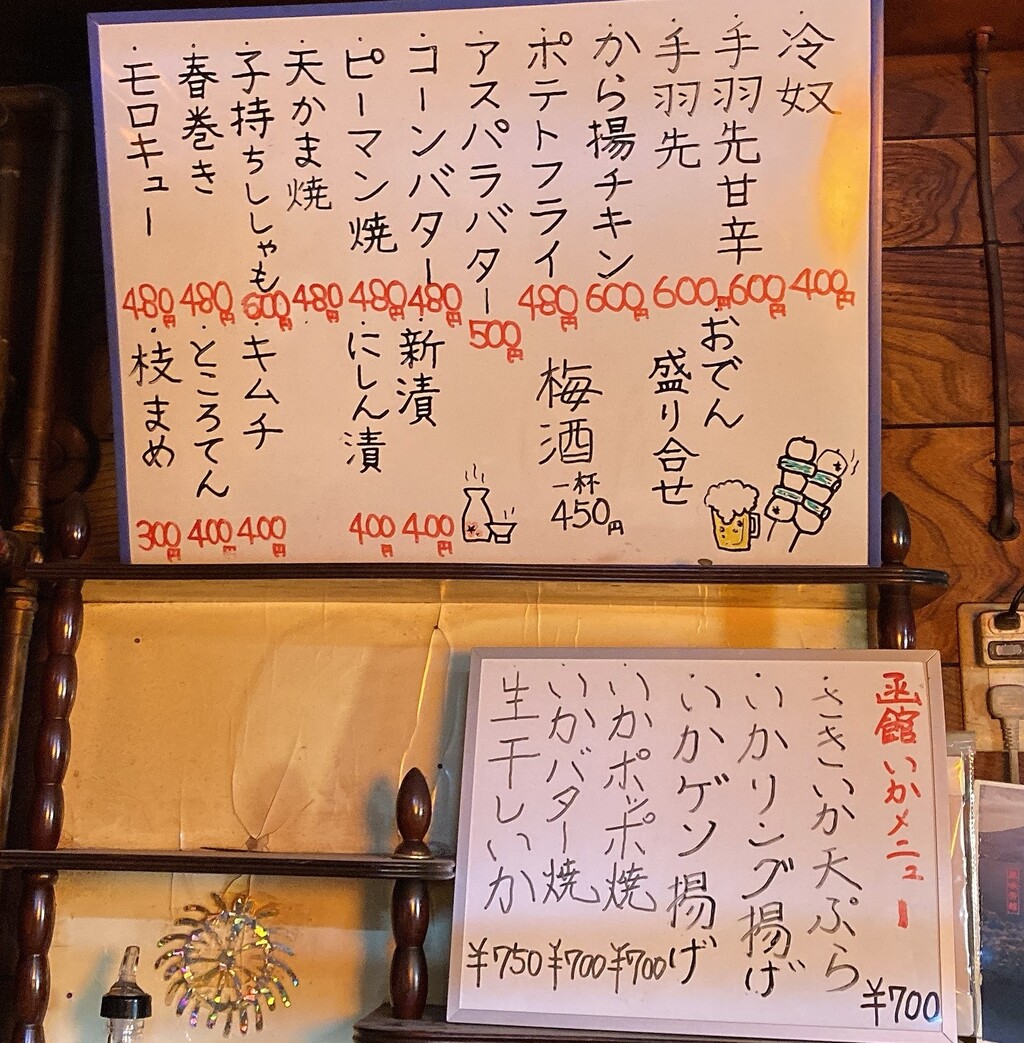 ・冷奴 400円
・手羽先甘辛 600円
・手羽先 600円
・から揚チキン 600円
・ポテトフライ 480円
・アスパラバター 500円
・コーンバター 480円
・ピーマン焼 480円
・天かま焼 480円
・子持ちししゃも 600円
・春巻き 480円
・モロキュー 480円
・おでん
盛り合せ
梅酒 一杯 450円
・新漬 400円
・にしん漬 400円
・キムチ 400円
・ところてん 400円
・枝まめ 300円
函館いかメニュー
・さきいか天ぷら ¥700
・いかリング揚げ
・いかゲソ揚げ
・いかポッポ焼 ¥700
・いかバター焼 ¥700
・生干しいか ¥750